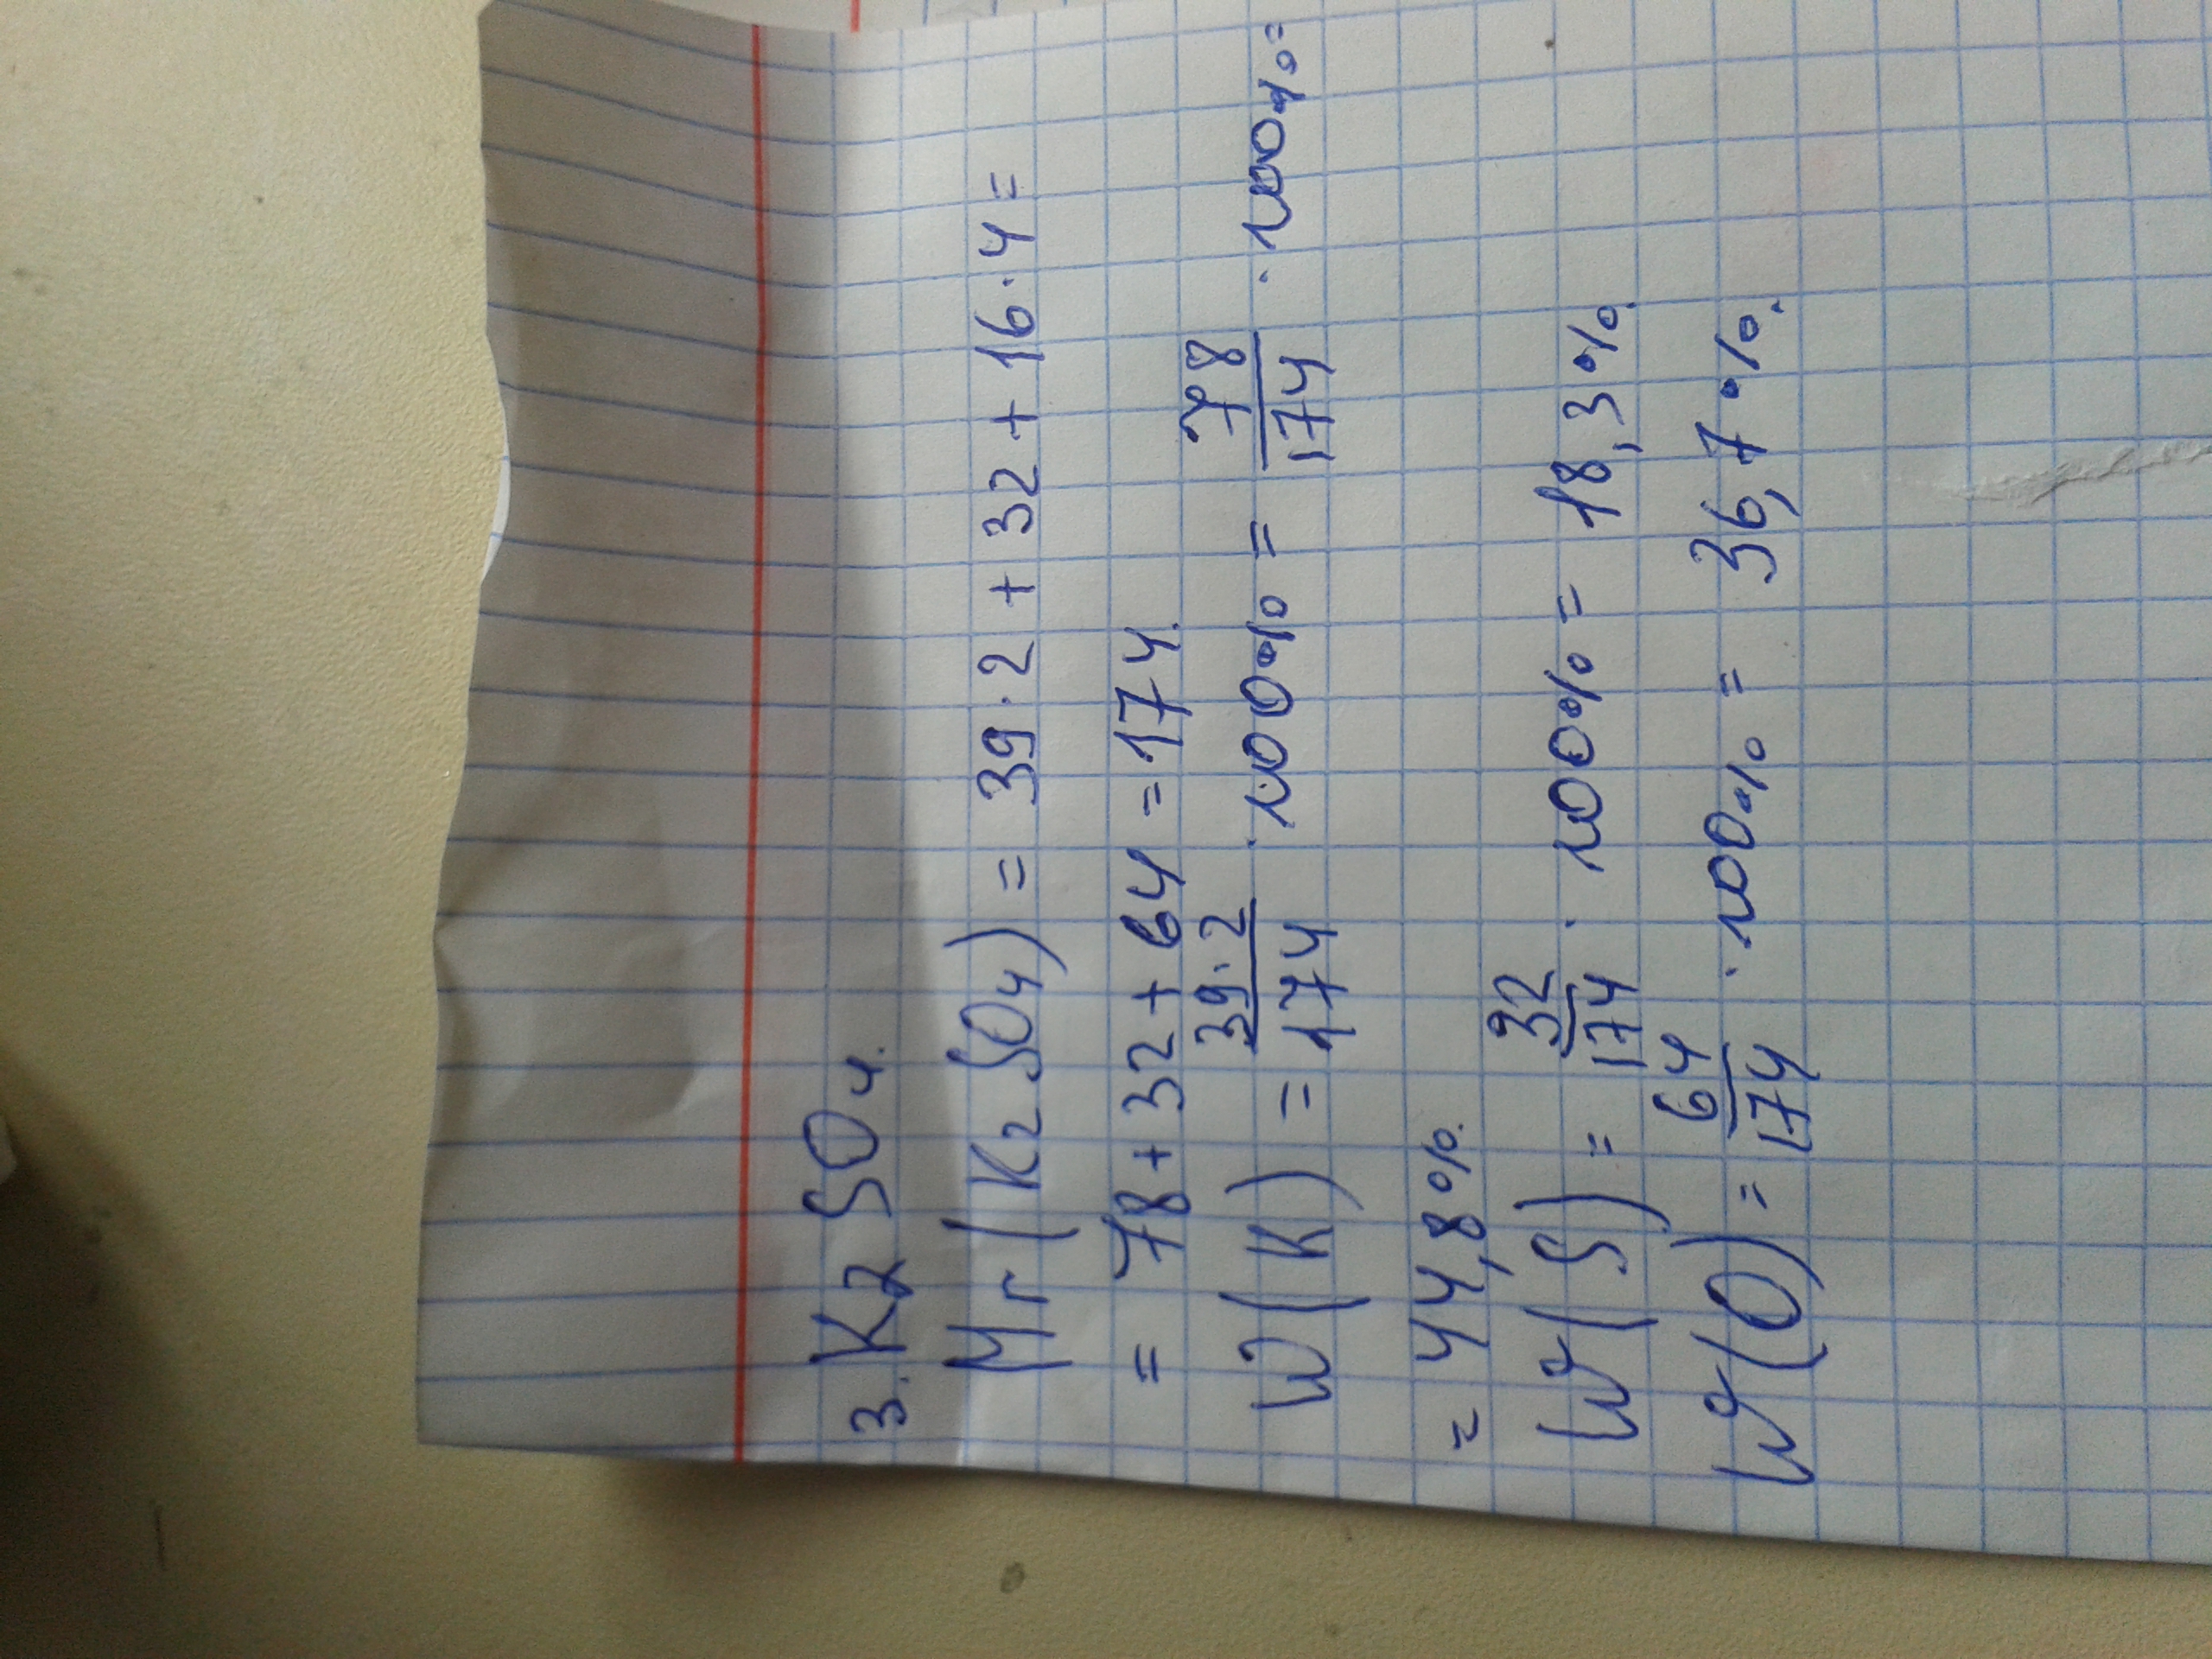 3. K2 SO4.
Mr (K2 SO4) = 39·2 + 32 + 16·4 =
= 78 + 32 + 64 = 174.
W(K) = 39·2/174 · 100% = 78/174 · 100% =
= 44,8%.
W(S) = 32/174 · 100% = 18,3%.
W(O) = 64/174 · 100% = 36,7%.